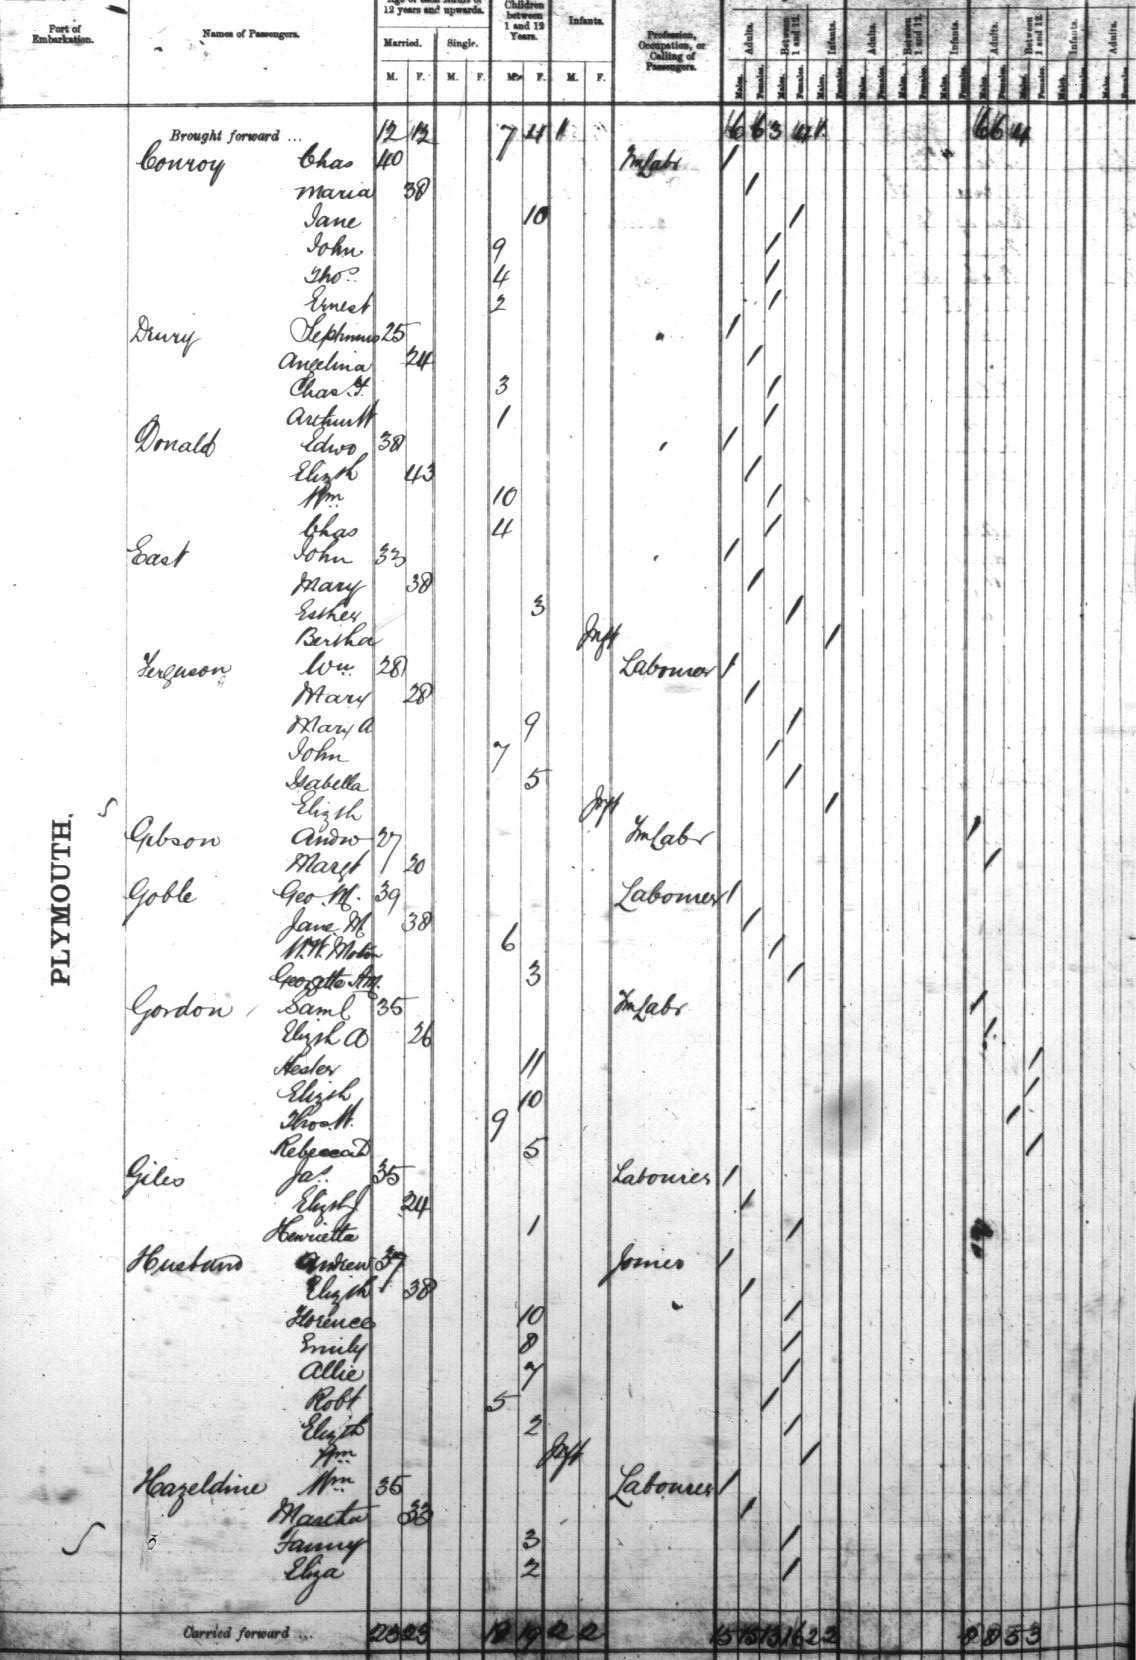 Port of Embarkation.
Names of Passengers.
12 years and upwards.
Married. Single.
Children between 1 and 12 Years.
Infants.
Profession, Occupation, or Calling of Passengers.
M. F. M. F. M. F. M. F.
Adults. Between 1 and 12. Infants. Adults. Between 1 and 12. Infants. Adults. Between 1 and 12. Infants. Adults.
PLYMOUTH.
Brought forward ... 12 12 7 4 1
Conroy Chas 40 FmLabr /
Maria 38 /
Jane 10 /
John 9 /
Thos. 4 /
Ernest 2 /
Drury Septimus 25 " /
Angelina 24 /
Chas. 3 /
Arthur W 1 /
Donald Edwd 38 " /
Elizth 43 /
Wm 10 /
Chas 4 /
East John 33 " /
Mary 38 /
Esther 3 /
Bertha Inft /
Ferguson Wm. 28 Labourer /
Mary 28 /
Mary A 9 /
John 7 /
Isabella 5 /
Elizth Inft /
Gibson Andw 27 FmLabr /
Margt 20 /
Goble Geo. M. 39 Labourer /
Jane M 38 /
W.W. 6 /
3 /
Gordon Saml 35 FmLabr /
Elizth A 26 /
Hester 11 /
Elizth 10 /
Thos W. 9 /
Rebecca 5 /
Giles Jas. 35 Labourer /
Elizth J 24 /
Henrietta 1 /
Husband Andrew 37 Joiner /
Elizth 38 /
Florence 10 /
Emily 8 /
Allie 7 /
Robt 5 /
Elizth 2 /
Wm Inft /
Hazeldine Wm 35 Labourer /
Martha 33 /
Fanny 3 /
Eliza 2 /
Carried forward ... 23 23 18 19 2 2 15 15 13 16 2 2 8 8 5 3